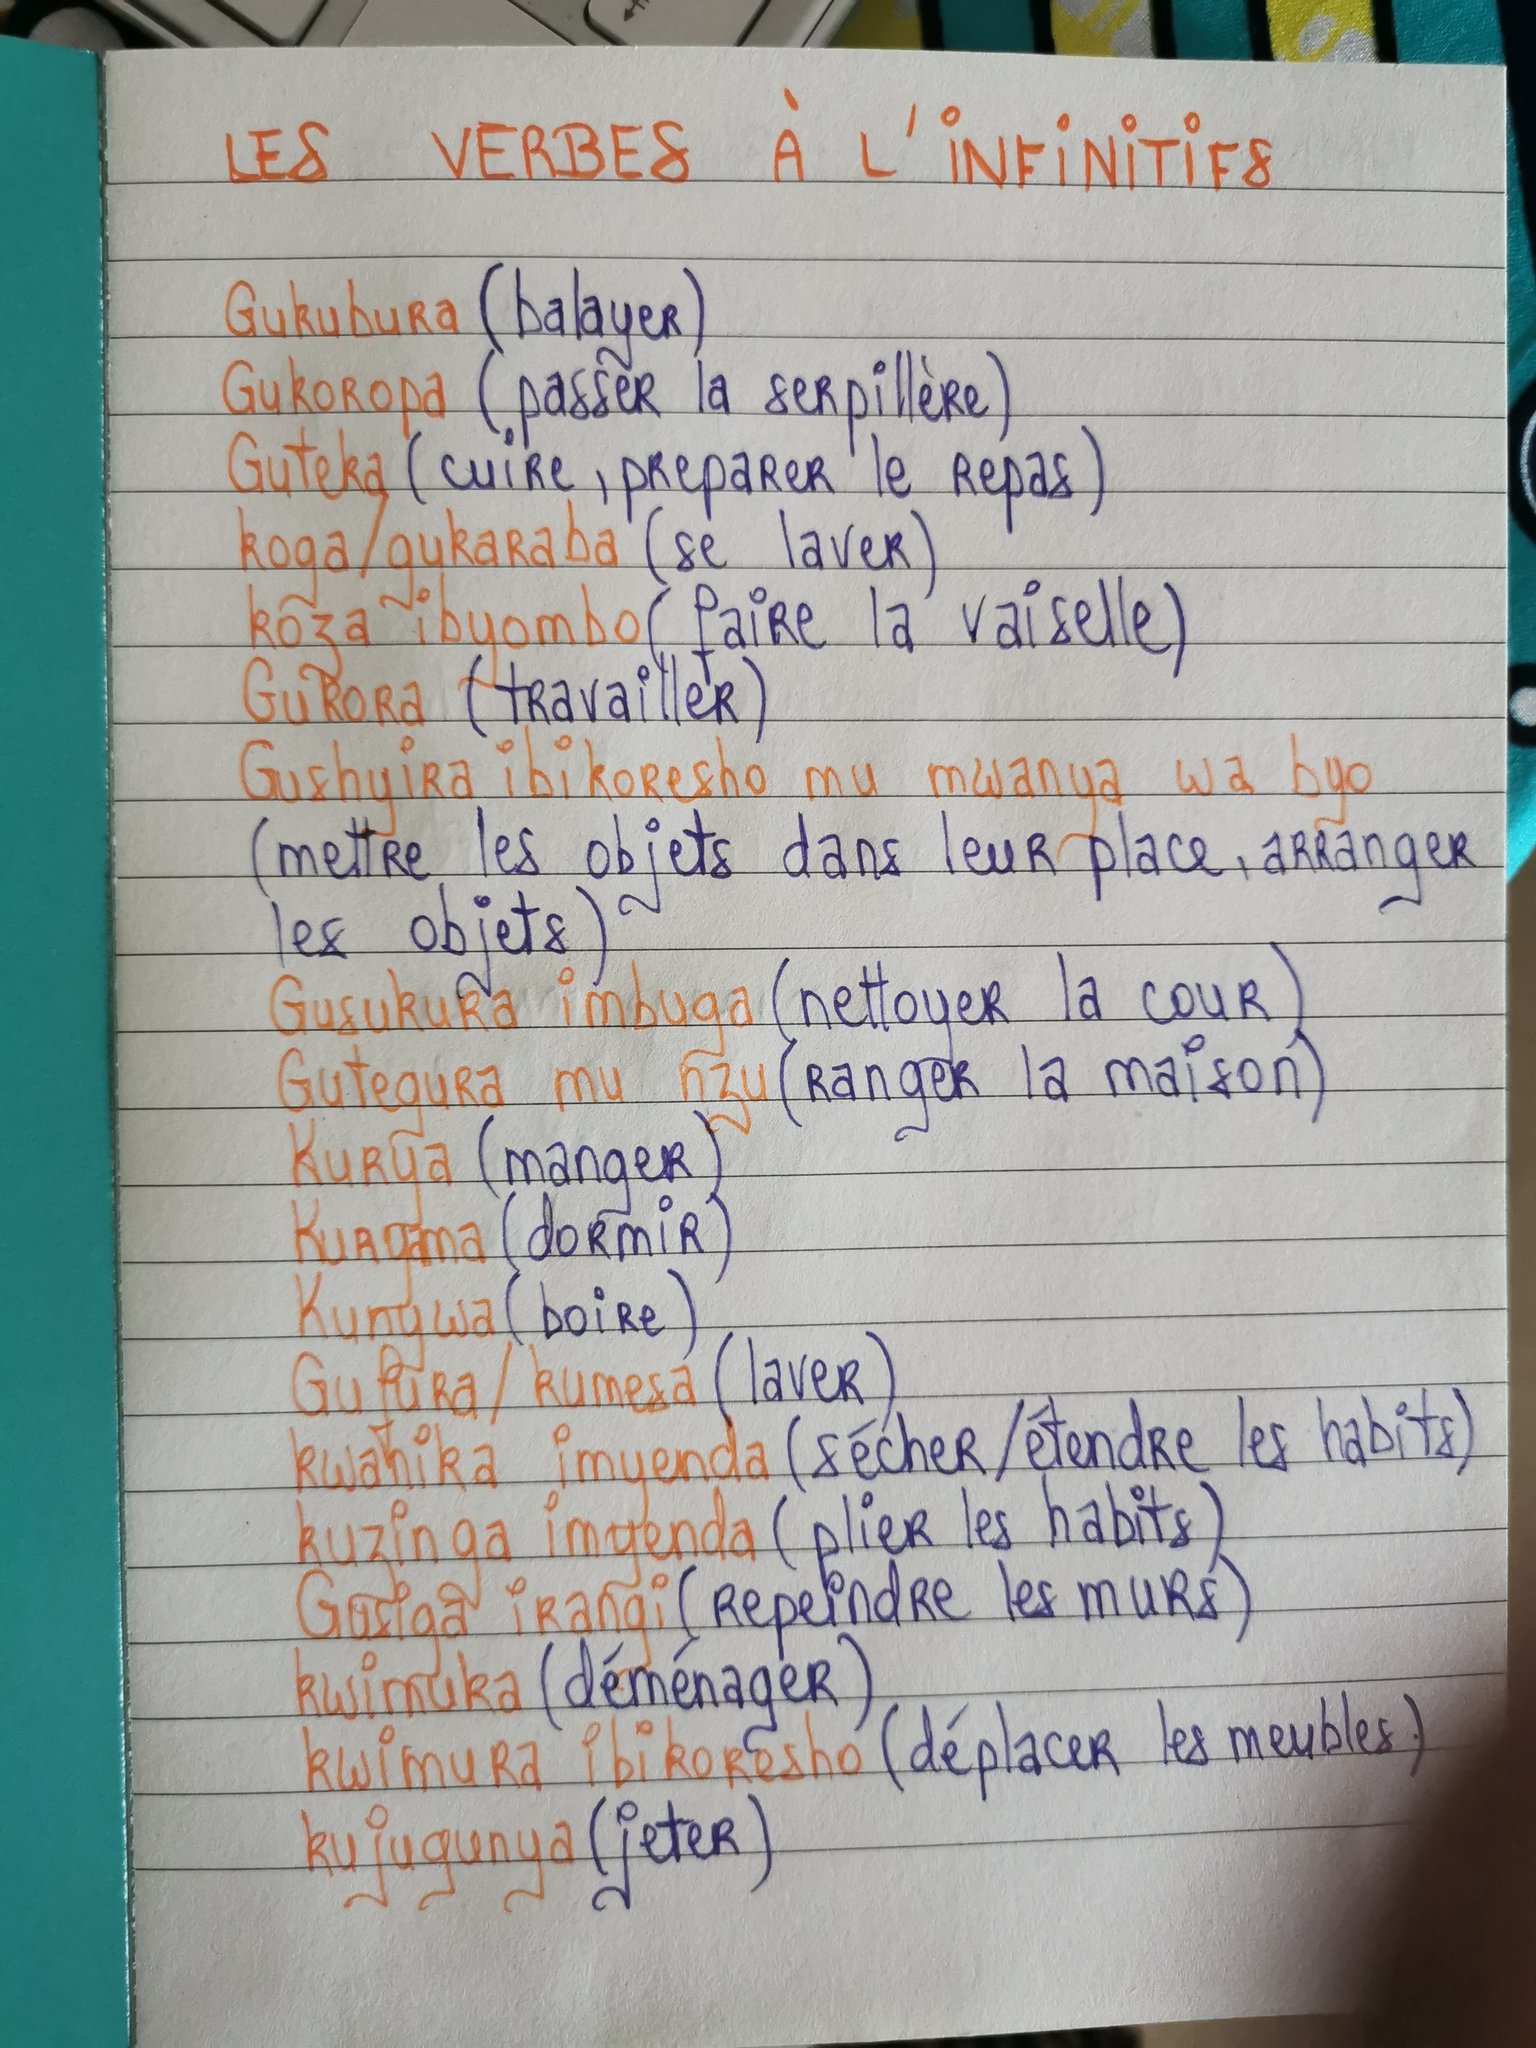 LES VERBES À L'INFINITIFS
Gukubura (balayer)
Gukoropa (passer la serpillère)
Guteka (cuire, preparer le repas)
koga/gukaraba (se laver)
koza ibyombo (faire la vaiselle)
Gukora (travailler)
Gushyira ibikoresho mu mwanya wa byo
(mettre les objets dans leur place, arranger
les objets)
Gusukura imbuga (nettoyer la cour)
Gutegura mu nzu (ranger la maison)
Kurya (manger)
Kuryama (dormir)
Kunywa (boire)
Gufura/kumesa (laver)
kwanika imyenda (sécher/étendre les habits)
kuzinga imyenda (plier les habits)
Gusiga irangi (repeindre les murs)
kwimuka (déménager)
kwimura ibikoresho (déplacer les meubles.)
kujugunya (jeter)